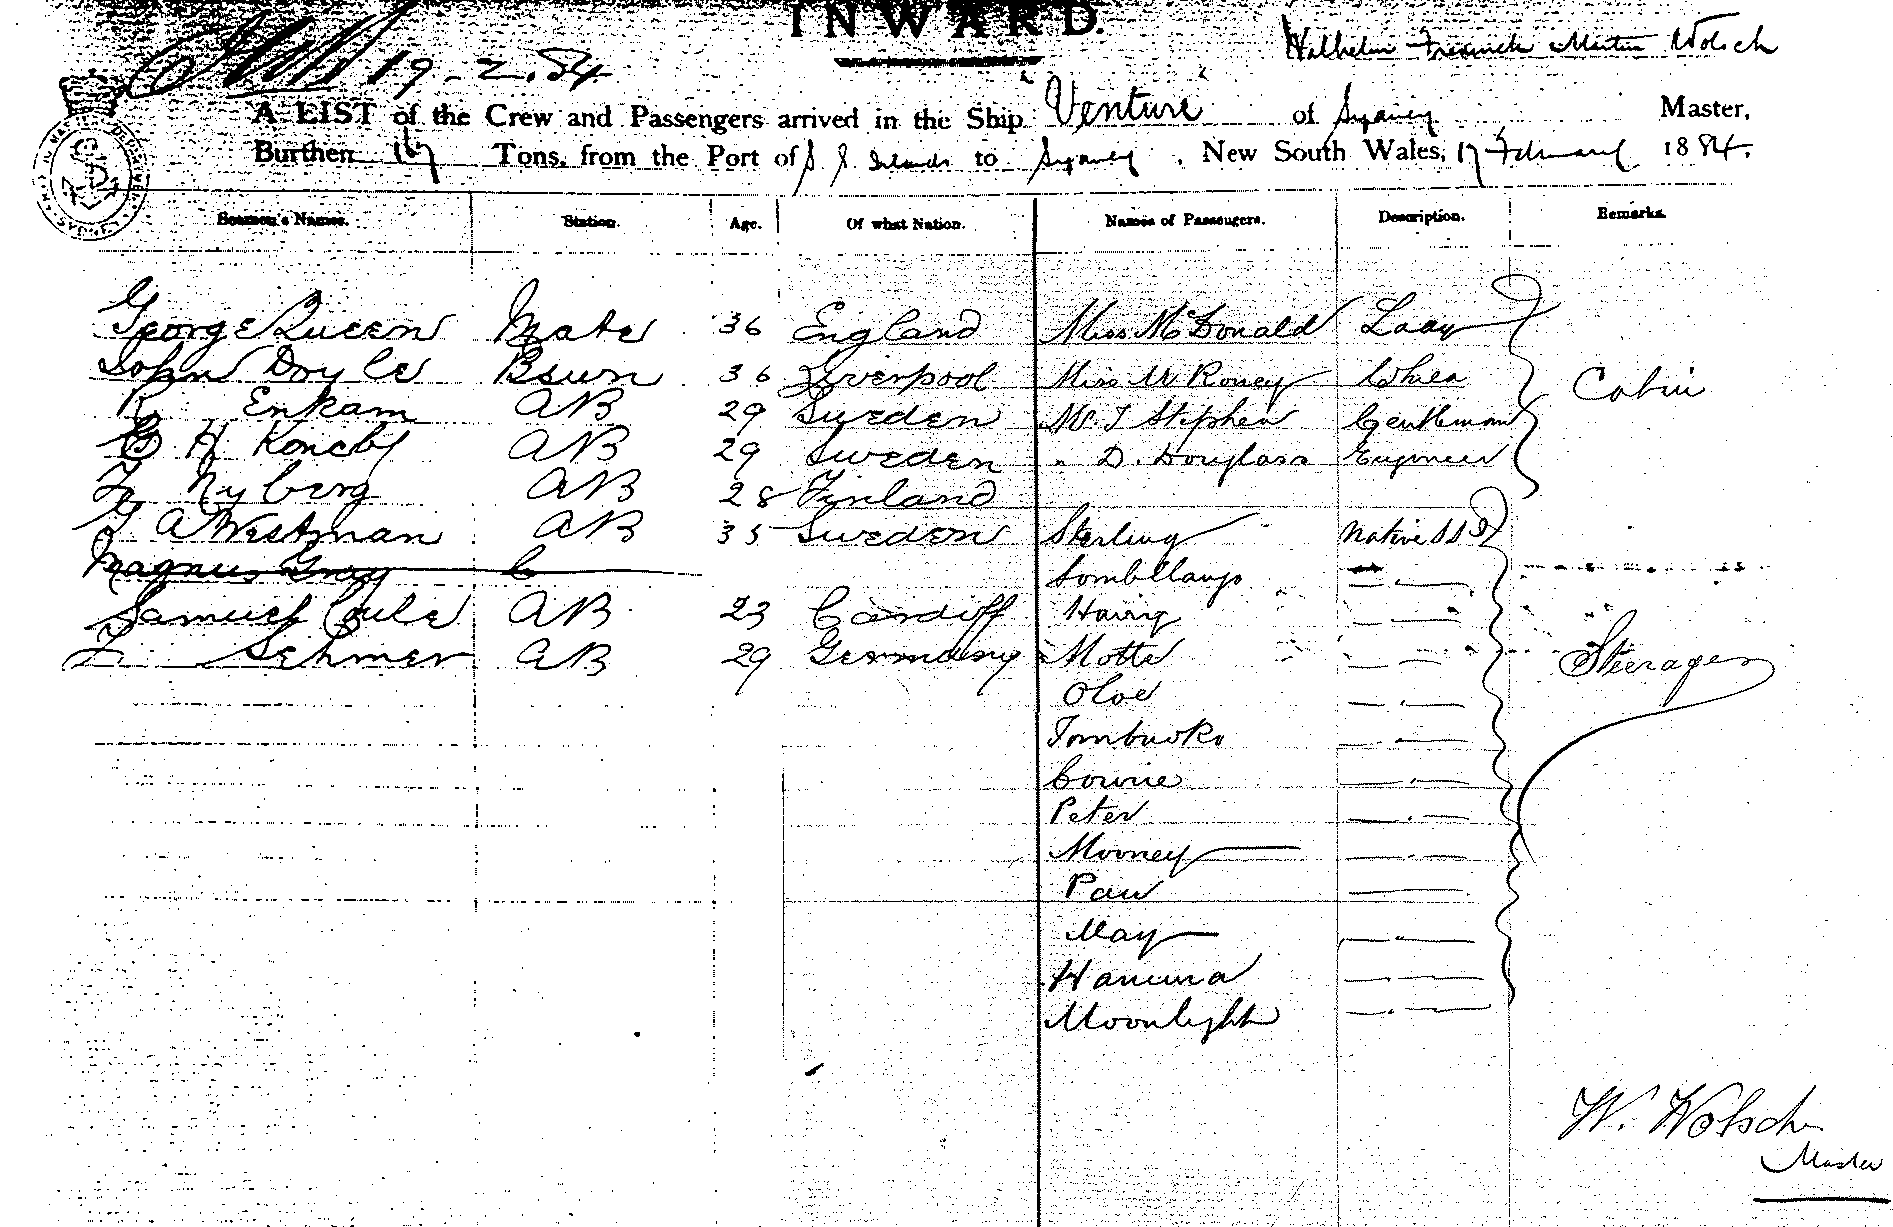 INWARD.
Wilhelm Frederick Martin Wolsch
19-2.84
A LIST of the Crew and Passengers arrived in the Ship "Venture" of Sydney Master,
Burthen Tons, from the Port of S. S. Islands to Sydney, New South Wales, 17 February 1884.
Seamen's Names. Station. Age. Of what Nation. Names of Passengers. Description. Remarks.
George Queen Mate 36 England Miss McDonald Lady
John Doyle Bsun 36 Liverpool Miss Roney Cabin
R Enkam AB 29 Sweden Mr. J Stephen Gentleman
H AB 29 Sweden " D. Douglass Engineer
Nyberg AB 28 Finland
A Westman AB 35 Sweden Sterling Native S S I
Magnus Gray
Samuel AB 23 Cardiff
Sehmer AB 29 Germany Motte Steerage
Oloe
Cowrie
Peter
Mooney
Paw
May
Moonlight
W. Wolsch
Master